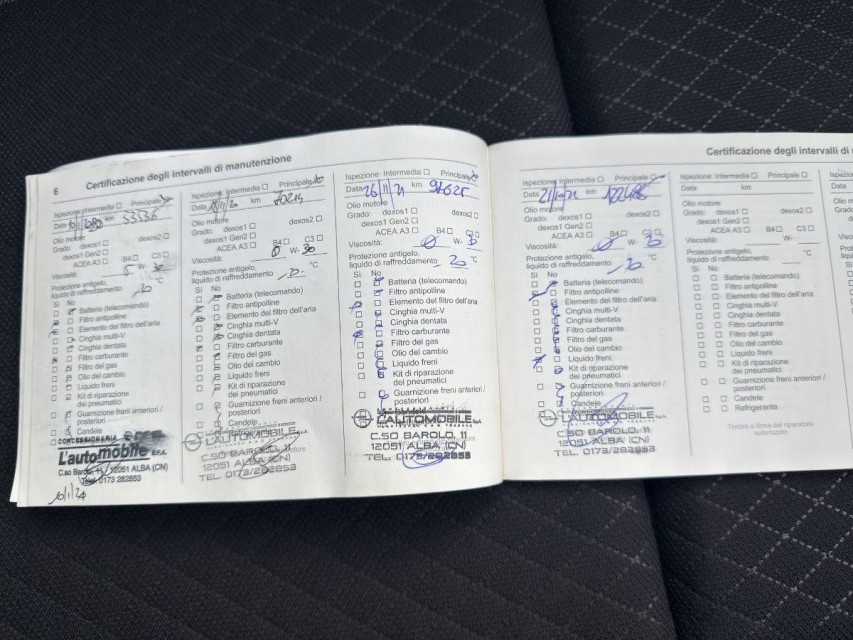 6 Certificazione degli intervalli di manutenzione
Ispezione: Intermedia Principale
Data km 53536
Olio motore
Grado: dexos1 dexos2
dexos1 Gen2
ACEA A3 B4 C3
Viscosità: 0 W- 30
Protezione antigelo,
liquido di raffreddamento °C
Sì No
Batteria (telecomando)
Filtro antipolline
Elemento del filtro dell'aria
Cinghia multi-V
Cinghia dentata
Filtro carburante
Filtro del gas
Olio del cambio
Liquido freni
Kit di riparazione
dei pneumatici
Guarnizione freni anteriori /
posteriori
Candele
CONCESSIONARIA
L'automobile S.P.A.
C.so Barolo, 11 / 12051 ALBA (CN)
Tel. 0173 282853
Ispezione: Intermedia Principale
Data km 70215
Olio motore
Grado: dexos1 dexos2
dexos1 Gen2
ACEA A3 B4 C3
Viscosità: 0 W- 30
Protezione antigelo,
liquido di raffreddamento °C
Sì No
Batteria (telecomando)
Filtro antipolline
Elemento del filtro dell'aria
Cinghia multi-V
Cinghia dentata
Filtro carburante
Filtro del gas
Olio del cambio
Liquido freni
Kit di riparazione
dei pneumatici
Guarnizione freni anteriori /
posteriori
Candele
L'AUTOMOBILE S.p.A.
C.SO BAROLO, 11
12051 ALBA (CN)
TEL. 0173/282853
Ispezione: Intermedia Principale
Data 26/11/21 km 97625
Olio motore
Grado: dexos1 dexos2
dexos1 Gen2
ACEA A3 B4 C3
Viscosità: 0 W-
Protezione antigelo,
liquido di raffreddamento 20 °C
Sì No
Batteria (telecomando)
Filtro antipolline
Elemento del filtro dell'aria
Cinghia multi-V
Cinghia dentata
Filtro carburante
Filtro del gas
Olio del cambio
Liquido freni
Kit di riparazione
dei pneumatici
Guarnizione freni anteriori /
posteriori
L'AUTOMOBILE S.p.A.
C.SO BAROLO, 11
12051 ALBA (CN)
TEL. 0173/282853
Certificazione degli intervalli di
Ispezione: Intermedia Principale
Data km 122488
Olio motore
Grado: dexos1 dexos2
dexos1 Gen2
ACEA A3 B4 C3
Viscosità: 0 W-
Protezione antigelo,
liquido di raffreddamento °C
Sì No
Batteria (telecomando)
Filtro antipolline
Elemento del filtro dell'aria
Cinghia multi-V
Cinghia dentata
Filtro carburante
Filtro del gas
Olio del cambio
Liquido freni
Kit di riparazione
dei pneumatici
Guarnizione freni anteriori /
posteriori
Candele
L'AUTOMOBILE S.p.A.
C.SO BAROLO, 11
12051 ALBA (CN)
TEL. 0173/282853
Ispezione: Intermedia Principale
Data km
Olio motore
Grado: dexos1 dexos2
dexos1 Gen2
ACEA A3 B4 C3
Viscosità: W-
Protezione antigelo,
liquido di raffreddamento °C
Sì No
Batteria (telecomando)
Filtro antipolline
Elemento del filtro dell'aria
Cinghia multi-V
Cinghia dentata
Filtro carburante
Filtro del gas
Olio del cambio
Liquido freni
Kit di riparazione
dei pneumatici
Guarnizione freni anteriori /
posteriori
Candele
Refrigerante
Timbro e firma del riparatore
autorizzato